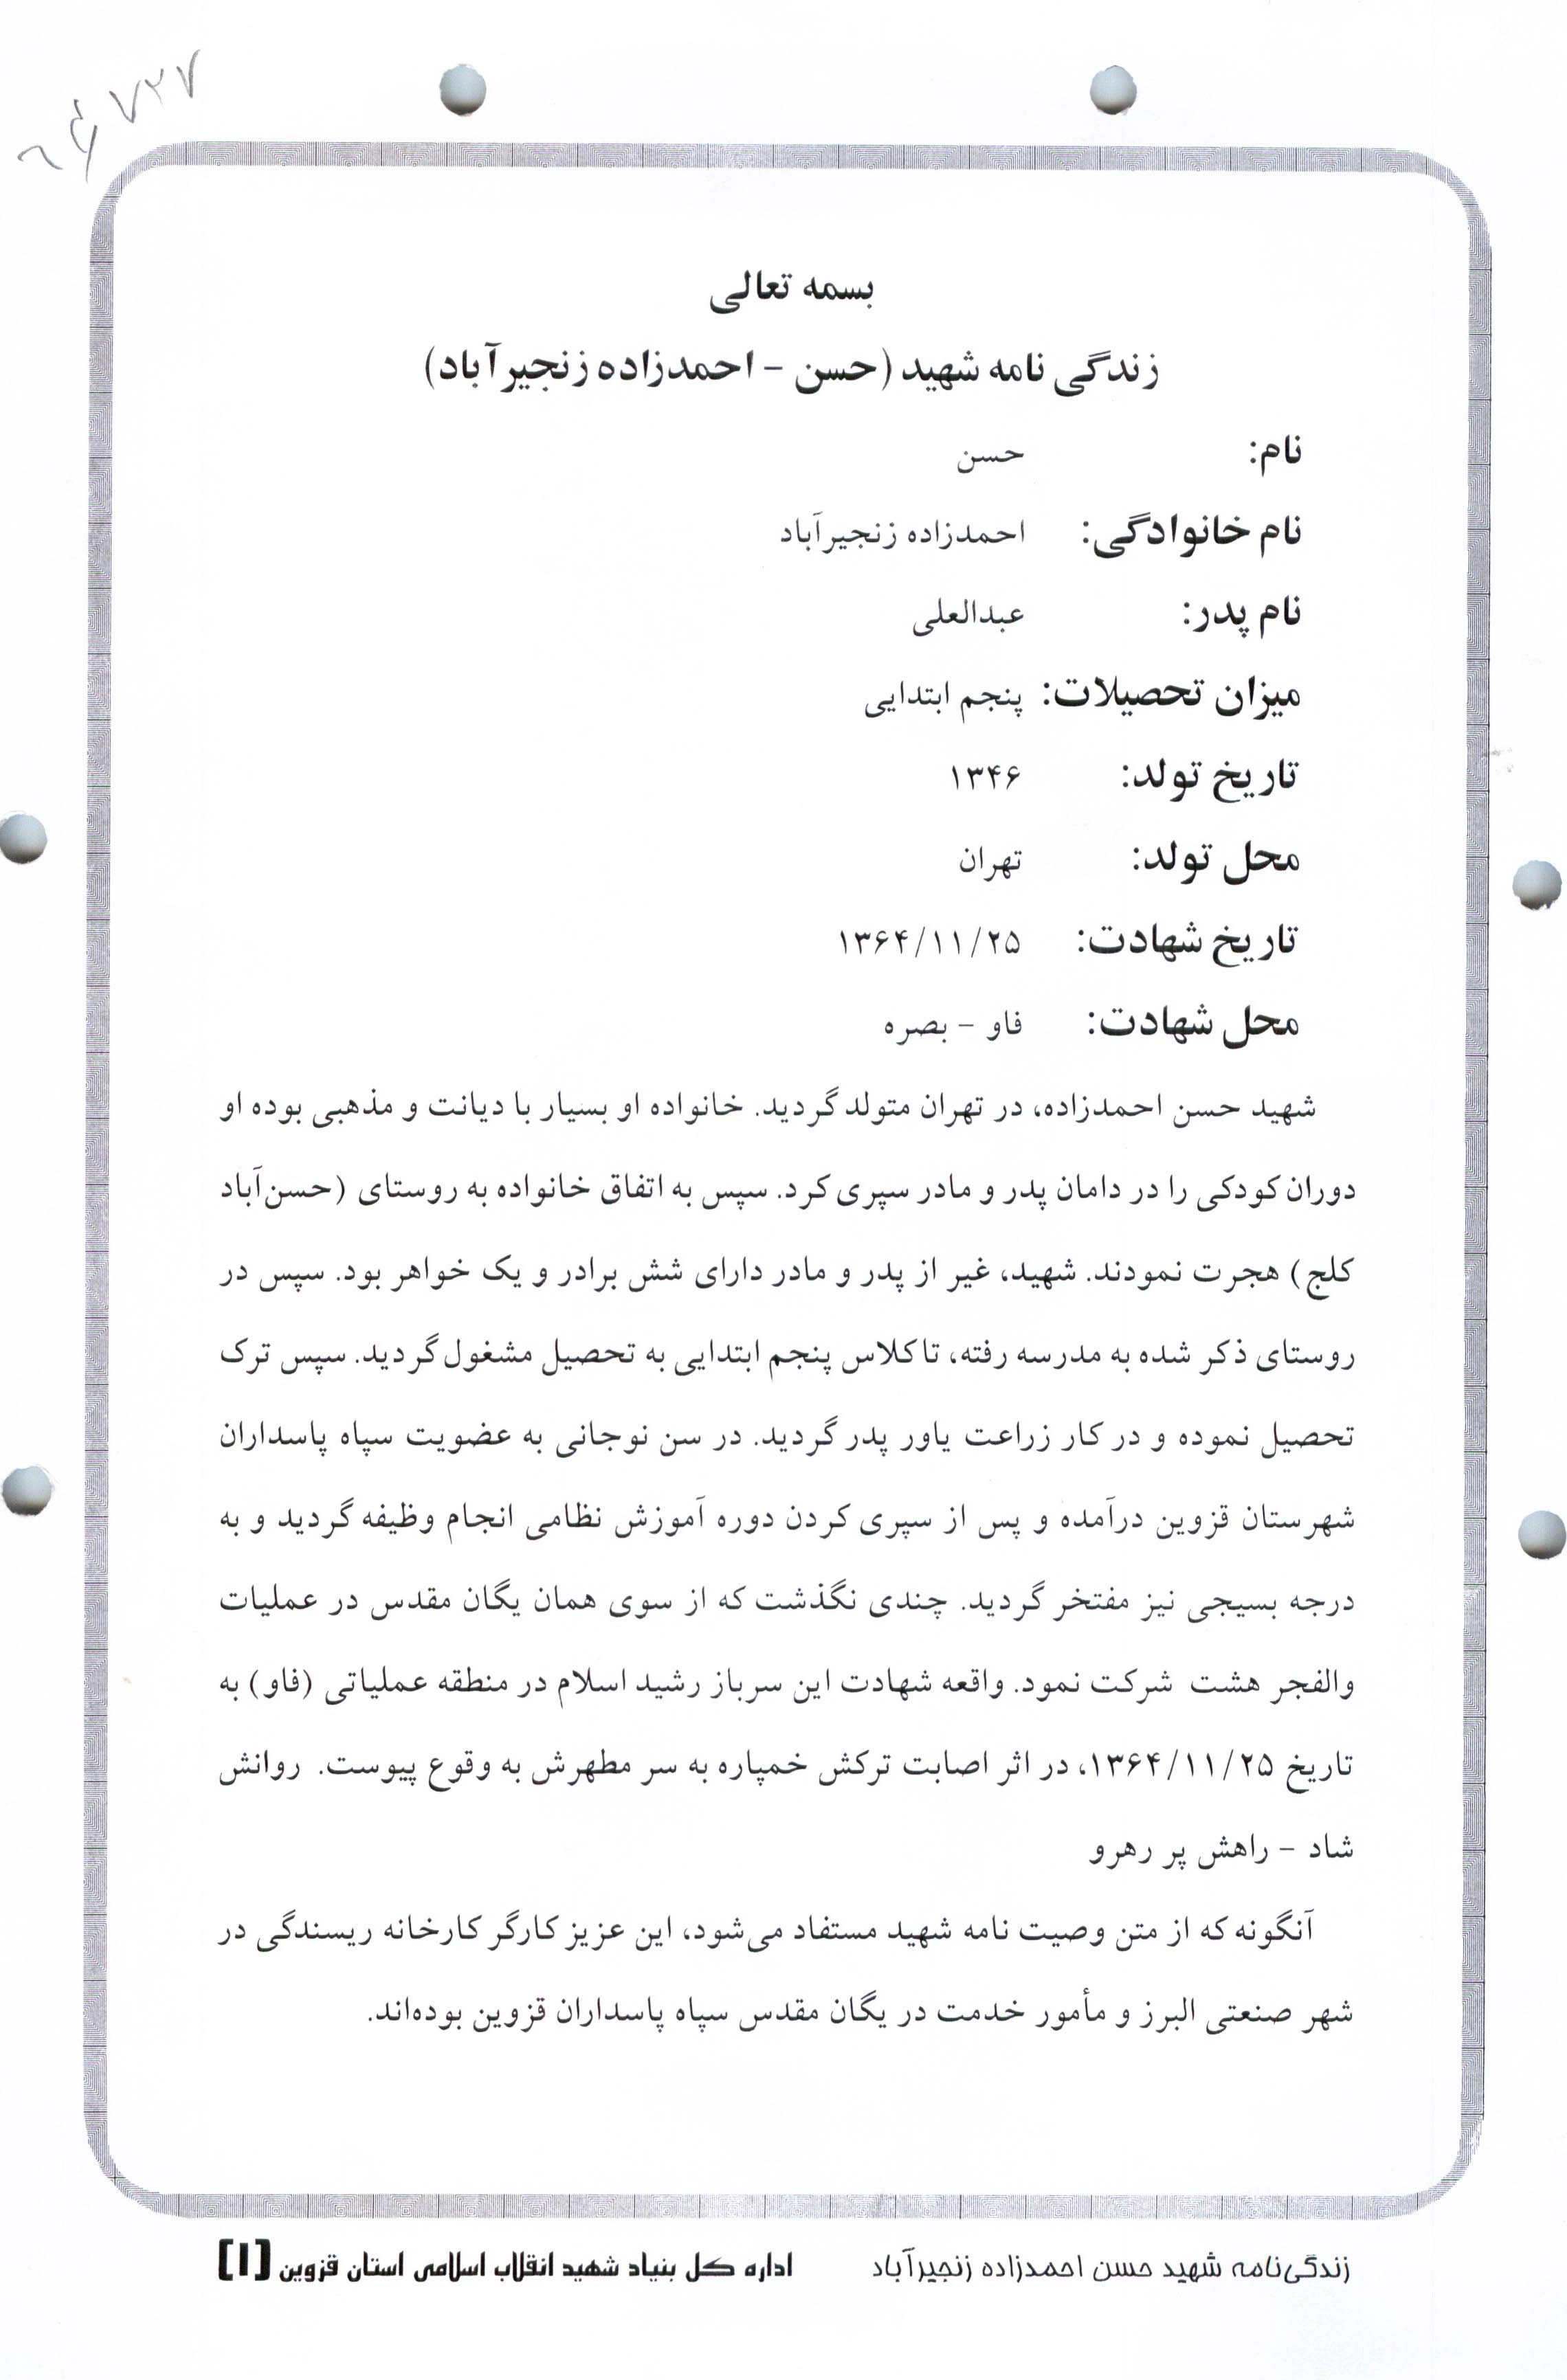 ۷۲۷
بسمه تعالی
زندگی نامه شهید (حسن - احمدزاده زنجیرآباد)
نام: حسن
نام خانوادگی: احمدزاده زنجیرآباد
نام پدر: عبدالعلی
میزان تحصیلات: پنجم ابتدایی
تاریخ تولد: ۱۳۴۶
محل تولد: تهران
تاریخ شهادت: ۱۳۶۴/۱۱/۲۵
محل شهادت: فاو - بصره
شهید حسن احمدزاده، در تهران متولد گردید. خانواده او بسیار با دیانت و مذهبی بوده او
دوران کودکی را در دامان پدر و مادر سپری کرد. سپس به اتفاق خانواده به روستای (حسن‌آباد
کلج) هجرت نمودند. شهید، غیر از پدر و مادر دارای شش برادر و یک خواهر بود. سپس در
روستای ذکر شده به مدرسه رفته، تا کلاس پنجم ابتدایی به تحصیل مشغول گردید. سپس ترک
تحصیل نموده و در کار زراعت یاور پدر گردید. در سن نوجانی به عضویت سپاه پاسداران
شهرستان قزوین درآمده و پس از سپری کردن دوره آموزش نظامی انجام وظیفه گردید و به
درجه بسیجی نیز مفتخر گردید. چندی نگذشت که از سوی همان یگان مقدس در عملیات
والفجر هشت شرکت نمود. واقعه شهادت این سرباز رشید اسلام در منطقه عملیاتی (فاو) به
تاریخ ۱۳۶۴/۱۱/۲۵، در اثر اصابت ترکش خمپاره به سر مطهرش به وقوع پیوست. روانش
شاد - راهش پر رهرو
آنگونه که از متن وصیت نامه شهید مستفاد می‌شود، این عزیز کارگر کارخانه ریسندگی در
شهر صنعتی البرز و مأمور خدمت در یگان مقدس سپاه پاسداران قزوین بوده‌اند.
زندگی‌نامه شهید حسن احمدزاده زنجیرآباد اداره کل بنیاد شهید انقلاب اسلامی استان قزوین [۱]